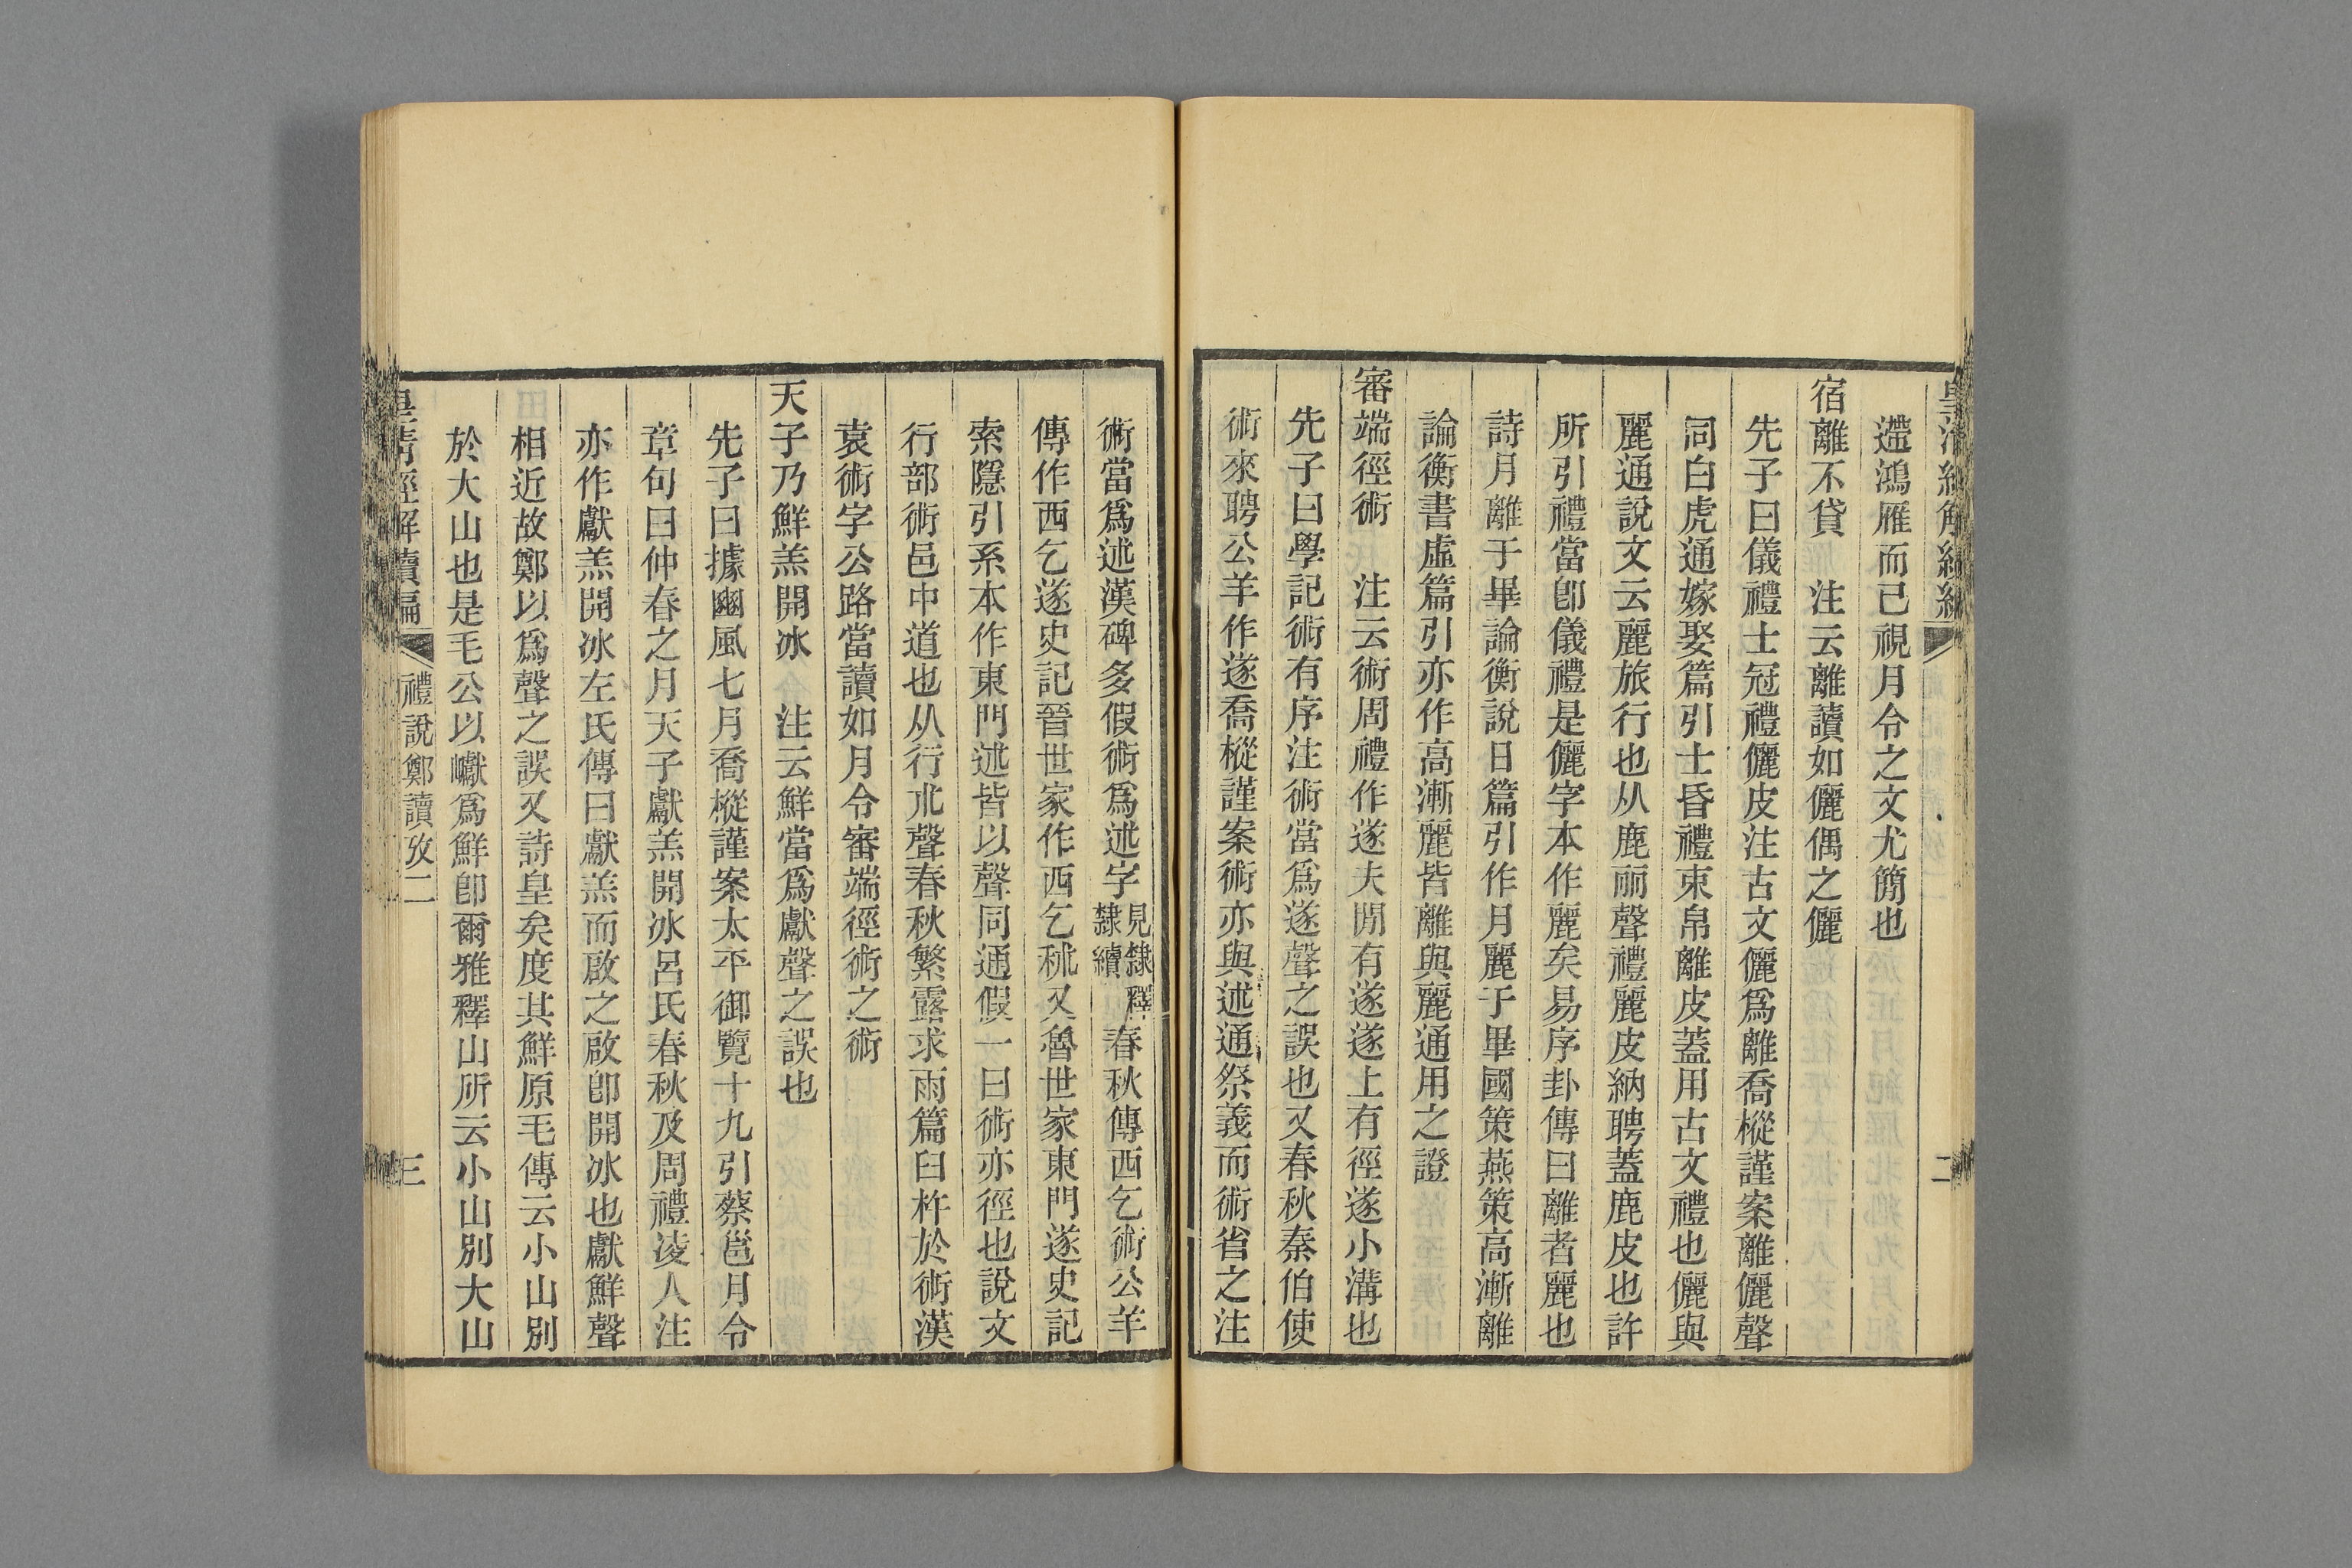 遰鴻雁而已視月令之文尤簡也
宿離不貸　注云離讀如儷偶之儷
先子曰儀禮士冠禮儷皮注古文儷爲離喬樅謹案離儷聲
同白虎通嫁娶篇引士昏禮束帛離皮蓋用古文禮也儷與
麗通說文云麗旅行也从鹿丽聲禮麗皮納聘蓋鹿皮也許
所引禮當卽儀禮是儷字本作麗矣易序卦傳曰離者麗也
詩月離于畢論衡說日篇引作月麗于畢國策燕策高漸離
論衡書虛篇引亦作高漸麗皆離與麗通用之證
審端徑術　注云術周禮作遂夫閒有遂遂上有徑遂小溝也
先子曰學記術有序注術當爲遂聲之誤也又春秋秦伯使
術來聘公羊作遂喬樅謹案術亦與述通祭義而術省之注
術當爲述漢碑多假術爲述字見隸釋隸續春秋傳西乞術公羊
傳作西乞遂史記晉世家作西乞秫又魯世家東門遂史記
索隱引系本作東門述皆以聲同通假一曰術亦徑也說文
行部術邑中道也从行朮聲春秋繁露求雨篇臼杵於術漢
袁術字公路當讀如月令審端徑術之術
天子乃鮮羔開冰　注云鮮當爲獻聲之誤也
先子曰據豳風七月喬樅謹案太平御覽十九引蔡邕月令
章句曰仲春之月天子獻羔開冰呂氏春秋及周禮淩人注
亦作獻羔開冰左氏傳曰獻羔而啟之啟卽開冰也獻鮮聲
相近故鄭以爲聲之誤又詩皇矣度其鮮原毛傳云小山別
於大山也是毛公以巘爲鮮卽爾雅釋山所云小山別大山
皇清經解續編　禮說鄭讀攷二　三